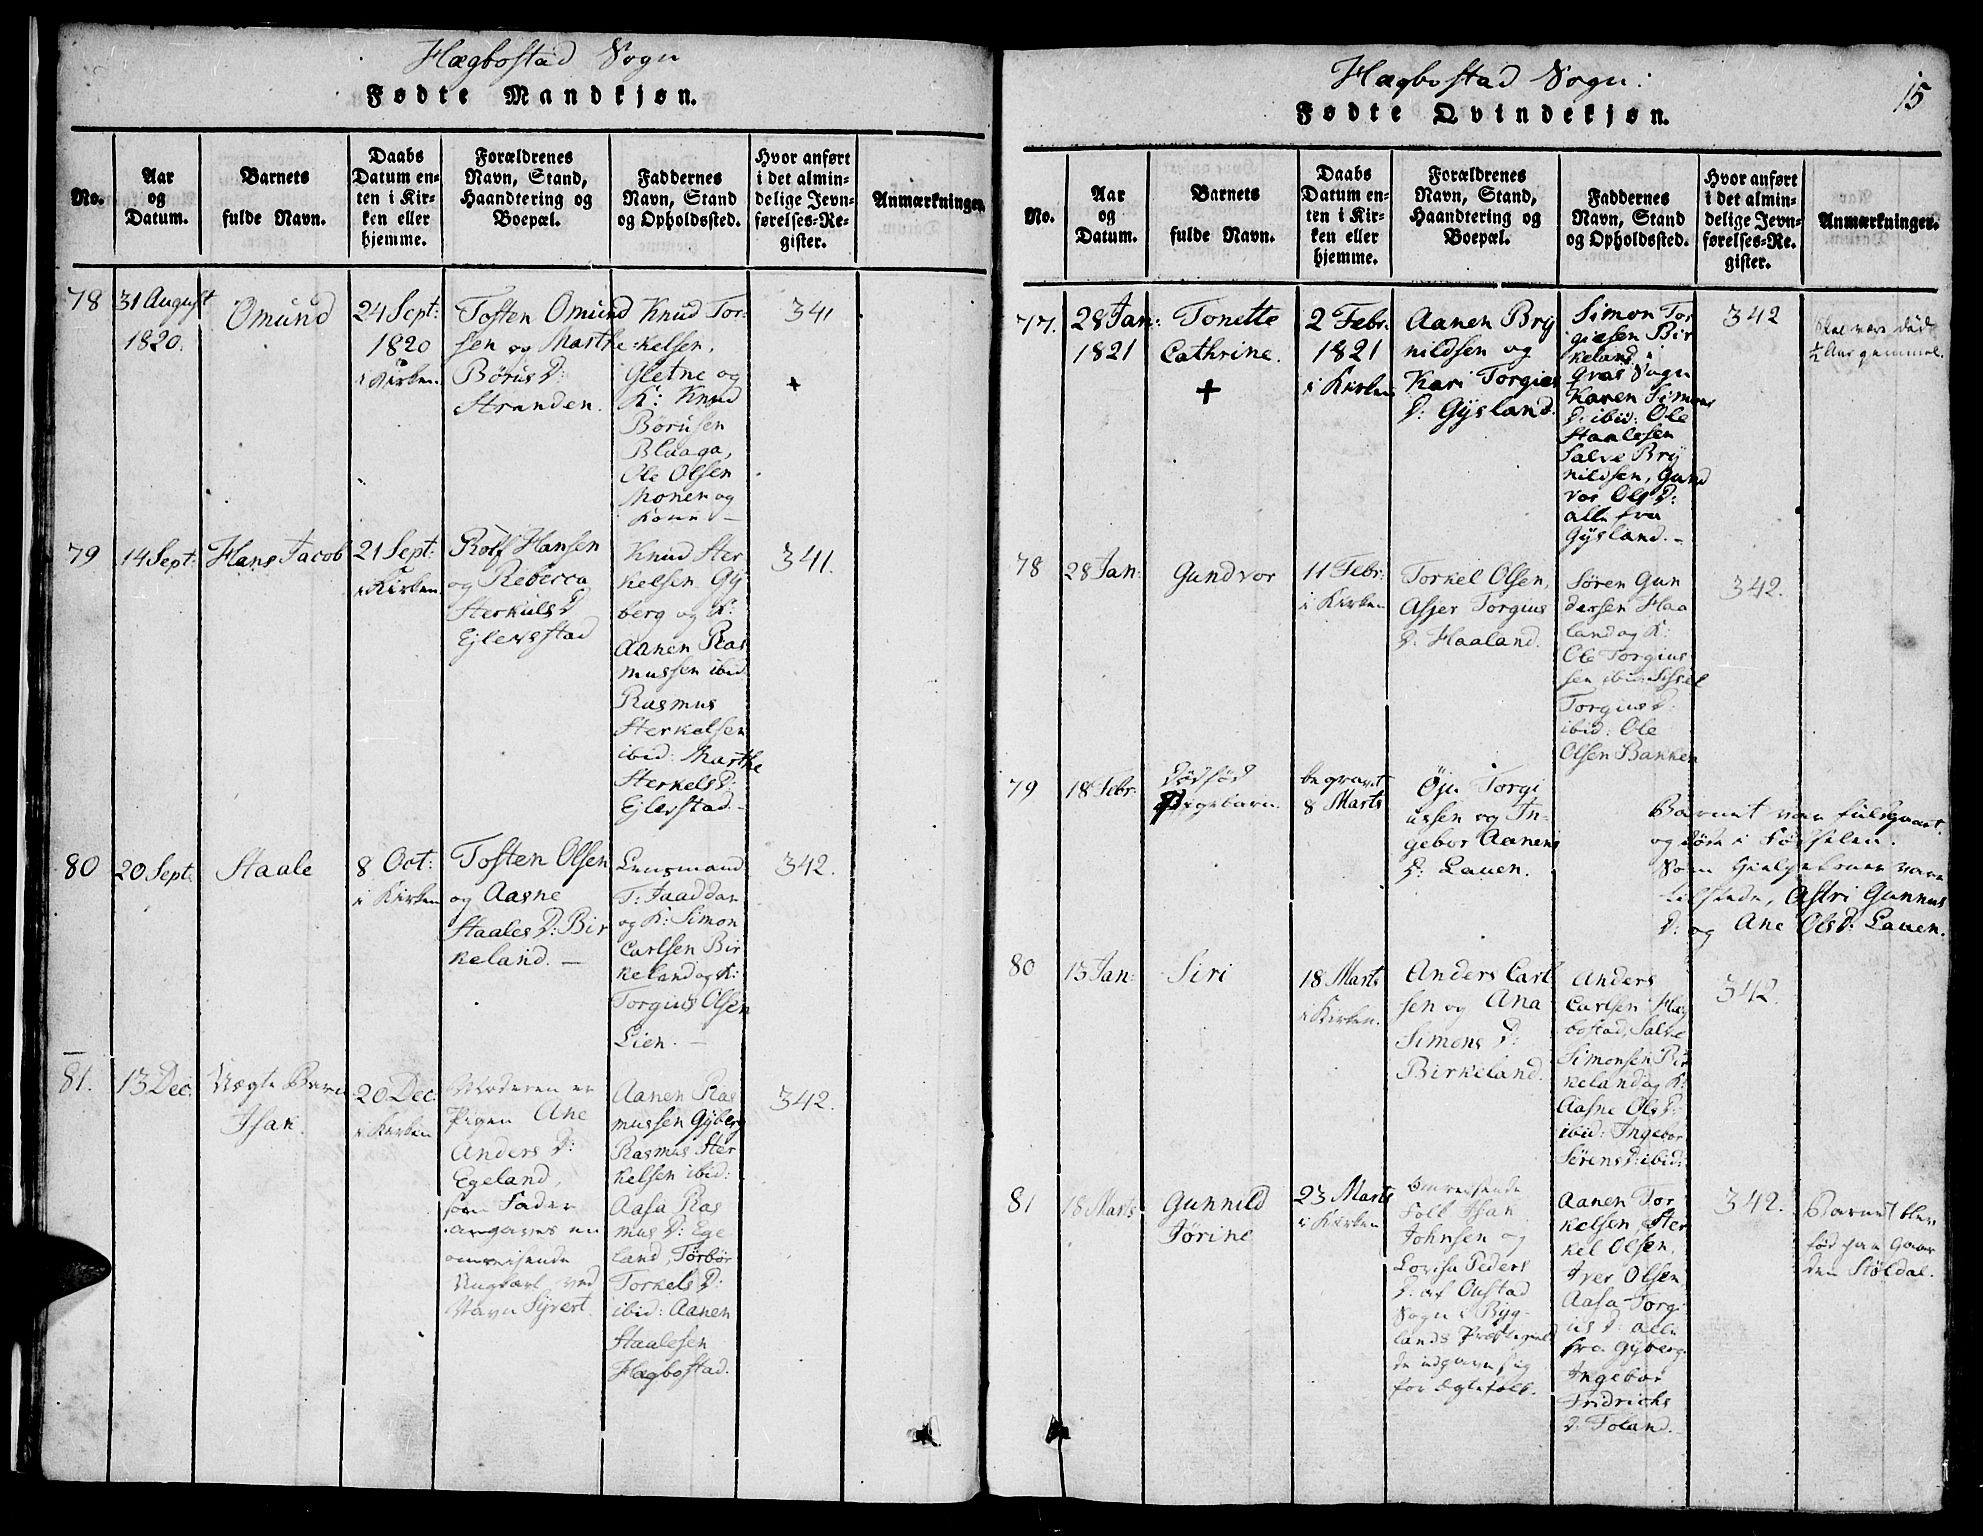 Hægbostad Sogn
Fødte Mandkjøn.
No.
Aar
og
Datum.
Barnets
fulde Navn.
Daabs
Datum en-
ten i Kir-
ken eller
hjemme.
Forældrenes
Navn, Stand,
Haandtering og
Boepæl.
Faddernes
Navn, Stand
og Opholdssted.
Hvor anført
i det almin-
delige Jevn-
førelses-Re-
gister.
Anmærkninger.
78
31 August
1820.
Omund
24 Sept:
1820
i Kirken
Tosten Omund
sen og Marthe
Børus D:
Stranden.
Knud Tor-
kelsen,
Gletne og
K: Knud
Børusen
Bluaga,
Ole Olsen
Monen og
Kone –
341
+
79
14 Sept:
Hans Jacob
21 Sept:
i Kirken
Rolf Hansen
og Rebecca
Sterkuls D
Ejlersstad
Knud Ster
kelsen Gÿ
berg og K:
Aanen Ras
mussen ibid
Rasmus
Sterkelsen
ibid: Marthe
Sterkels D:
Ejlerstad. –
341.
80
20 Sept:
Staale
8 Oct:
i Kirken
Tosten Olsen
og Aasne
Staales D: Bir
keland. –
Lensmand
T: Faaddan
og K: Simon
Carlsen Bir
keland og K:
Torgius Olsen
Lien. –
342.
81.
13 Dec:
Uægte Barn
Isak.
20 Dec:
i Kirken
Moderen er
Pigen Ane
Anders D:
Egeland,
som Fader
angaves en
omreisende
Ungkarl, ved
Navn Sÿvert.
Aanen Ras
mussen Gÿberg
Rasmus Ster
kelsen ibid:
Aasa Ras
mus D: Ege
land, Tørbør
Torkels D:
ibid: Aanen
Staalesen
Hægbostad.
342.
Hægbostad Sogn:
15
Fødte Qvindekjøn.
No.
Aar
og
Datum.
Barnets
fulde Navn.
Daabs
Datum en-
ten i Kir-
ken eller
hjemme.
Forældrenes
Navn, Stand,
Haandtering og
Boepæl.
Faddernes
Navn, Stand
og Opholdssted.
Hvor anført
i det almin-
delige Jevn-
førelses-Re-
gister.
Anmærkninger.
77.
28 Jan:
1821
Tonette
Cathrine.
+
2 Febr:
1821
i Kirken
Aanen Brÿ
nildsen og
Kari Torgius
D: Gÿsland.
Simon Tor
giesen Bir
keland i
Qvas Sogn
Karen Simons
D: ibid: Ole
Staalesen
Salve Brÿ
nildsen, Gund
vor Ols D:
alle fra
Gÿsland. –
342
skal være død
½ Aar gammel.
78
28 Jan:
Gundvor
11 Febr:
i Kirken
Torkel Olsen,
Asser Torgius
D: Haaland.
Søren Gun
dersen Haa
land og K:
Ole Torgius
sen ibid Sissel
Torgius D:
ibid: Ole
Olsen Bakken
342.
79
18 Febr:
Dødfød
Pigebarn.
begravet
8 Marts
Øjn Torgi
ussen og In-
gebor Aanens
D: Lauen.
Barnet var fuldgaaet
og døde i Fødselen.
Som Gielpekoner vare
tilstede, Astri Gunnus
D: og Ane Ols D: Lauen.
80
13 Jan:
Siri
18 Marts
i Kirken.
Anders Carl
sen og Ana
Simons D:
Birkeland.
Anders
Carlsen Hæg
bostad, Salve
Simonsen Bir
keland og K:
Aasne Ols D:
ibid: Ingebor
Sørens D: ibid:
342.
81
18 Marts
Gunnild
Jørine
23 Marts
i Kirken
Omreisende
Folk Isak
Johnsen og
Lovisa Peders
D: af Oustad
Sogn i Byg
lands Præstegield
de udgave sig
for Ægtefolk.
Aanen Tor
kelsen, Ster
kel Olsen,
Iver Olsen,
Aasa Torgi
us D: alle
fra Gÿberg
Ingebor
Fridrichs
D: Foland. –
342.
Barnet blev
fød paa Gaar
den Støldal.